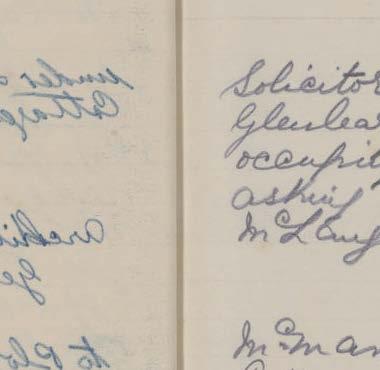 under
Cottage
Solicitor
Glenlear
occupi
asking
McLaug
McMan
to Plo